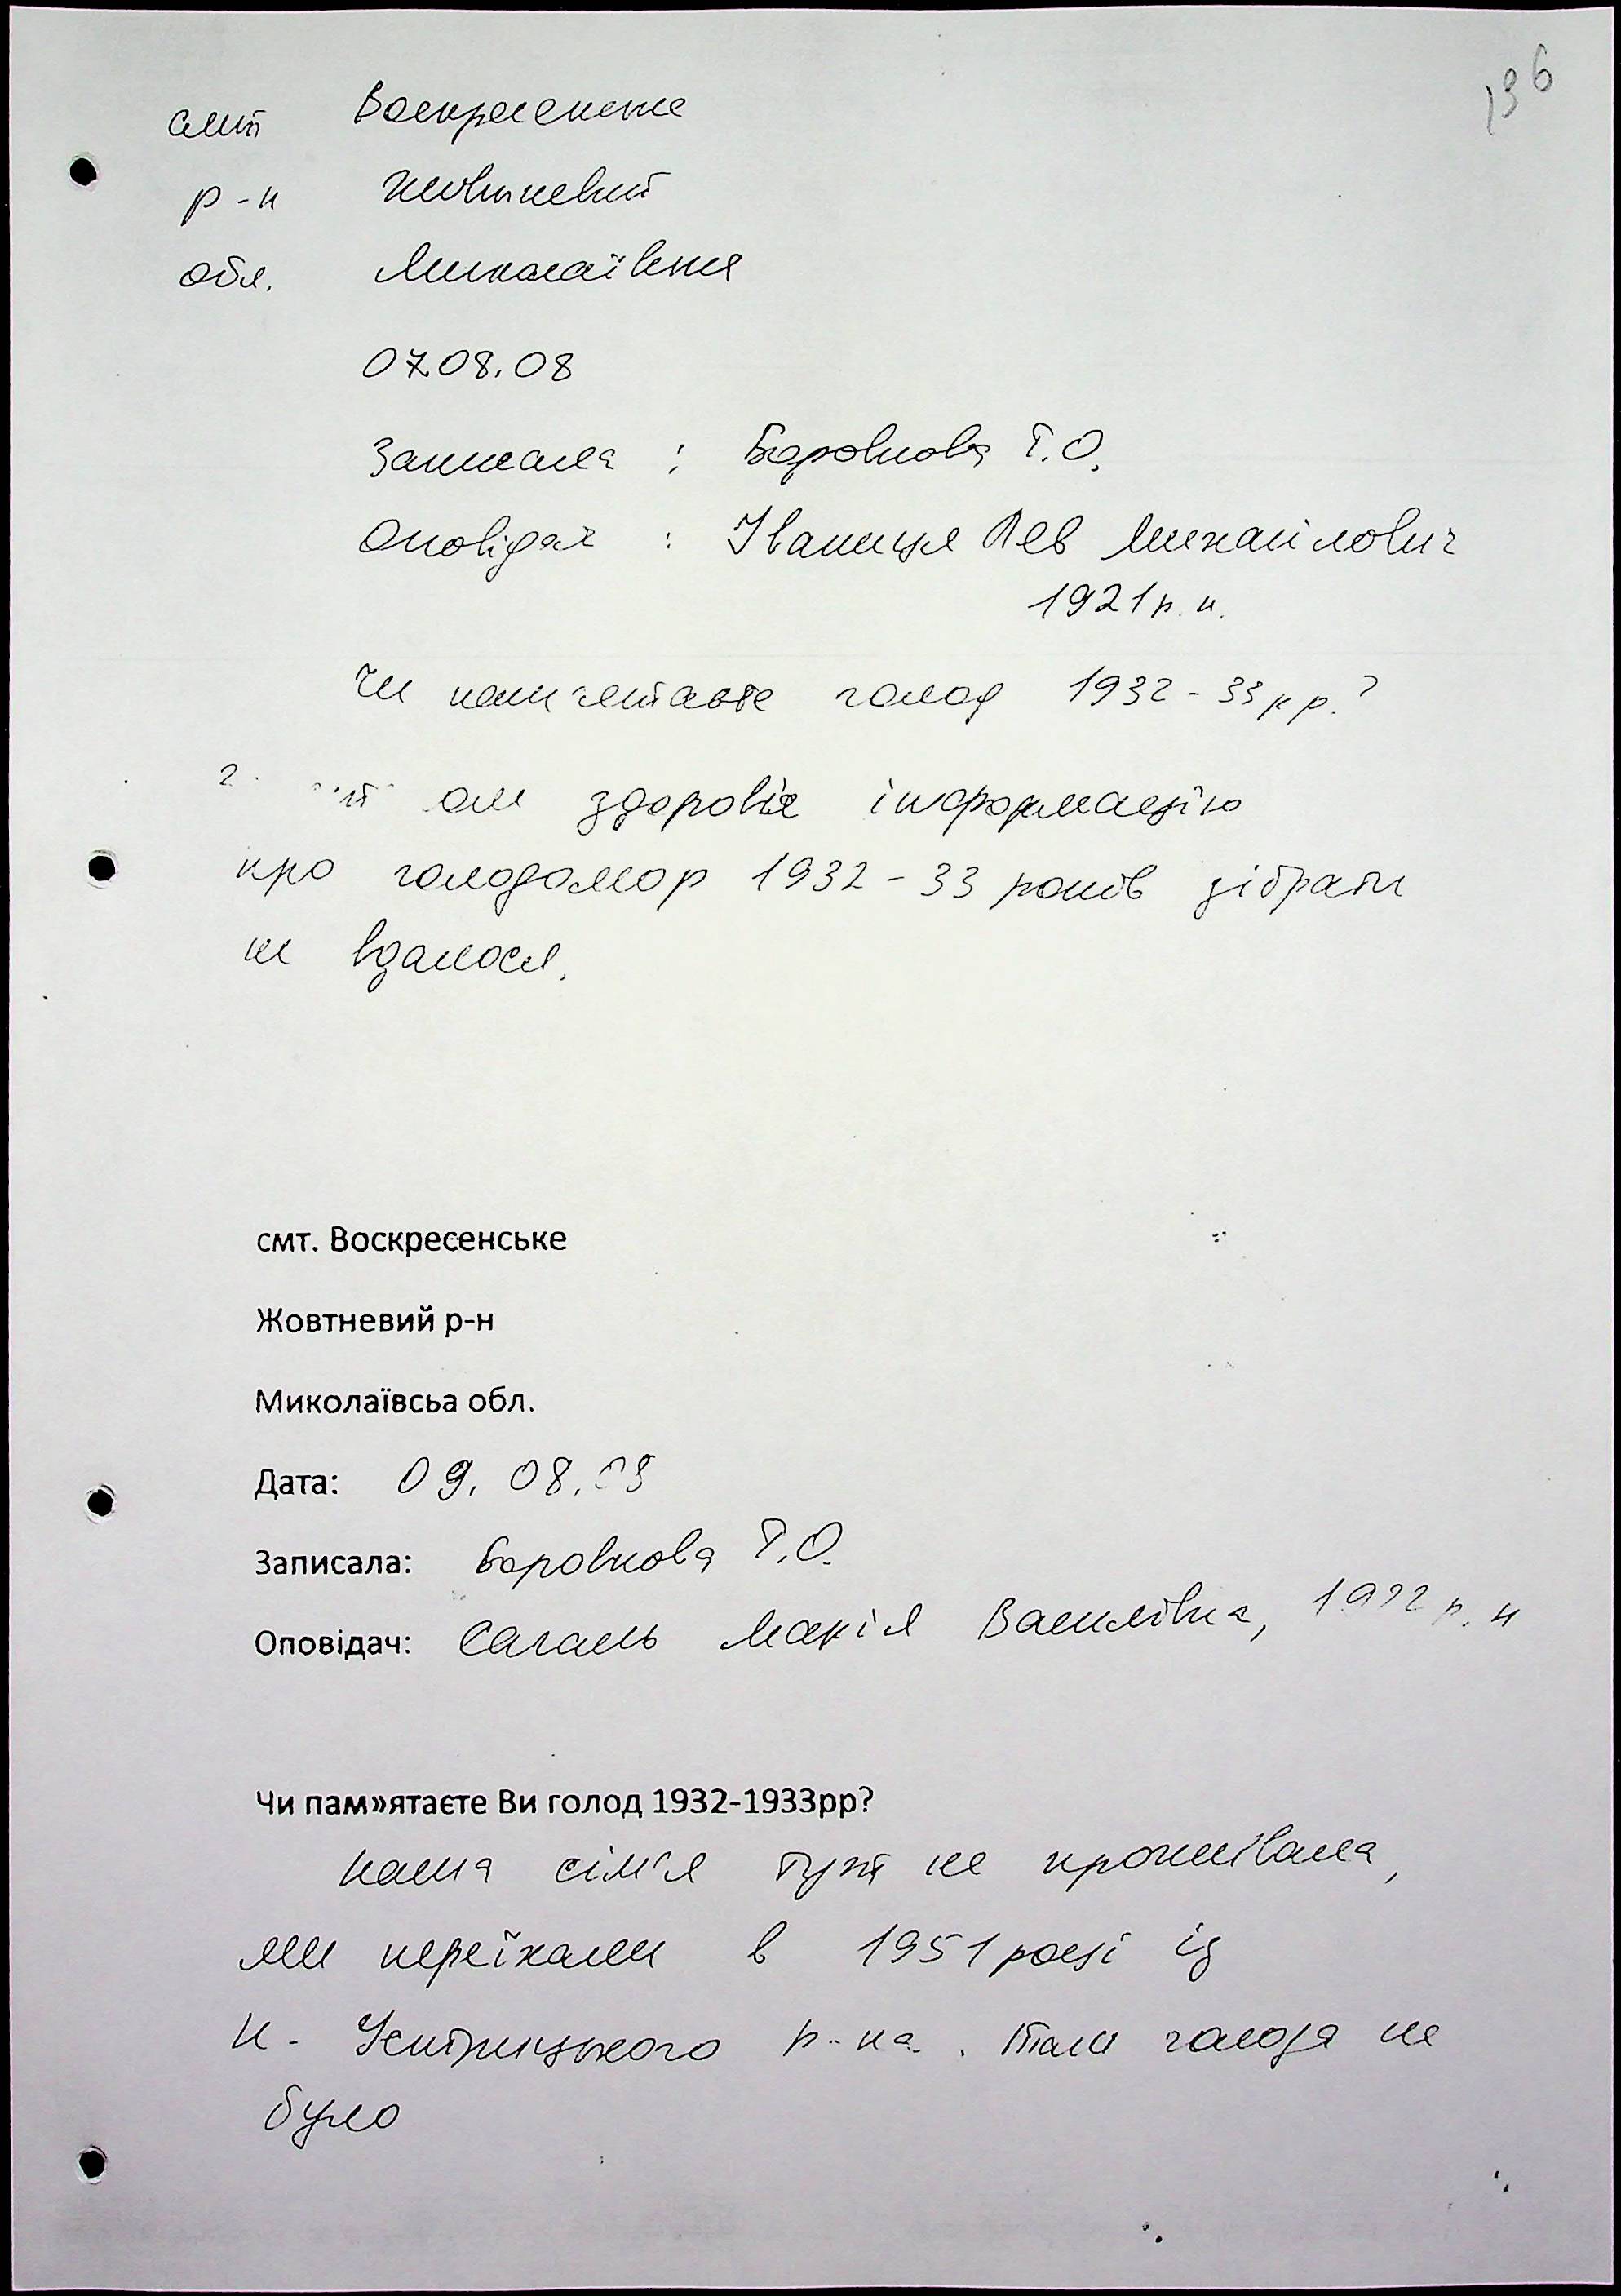 136
смт Воскресенське
р-н Жовтневий
обл. Миколаївська
07.08.08
Записала : Боровкова Т.О.
Оповідач : Іваниця Лев Михайлович
1921 р. н.
Чи пам'ятаєте голод 1932 - 33 рр.?
здоров'я інформацію
про голодомор 1932 - 33 років зібрати
не вдалося.
смт. Воскресенське
Жовтневий р-н
Миколаївсьа обл.
Дата: 09. 08.
Записала: Боровкова Т.О.
Оповідач: Сагань Марія Василівна, р. н
Чи пам»ятаєте Ви голод 1932-1933рр?
наша сім'я тут не проживала,
ми переїхали в 1951 році із
р-на. там голода не
було